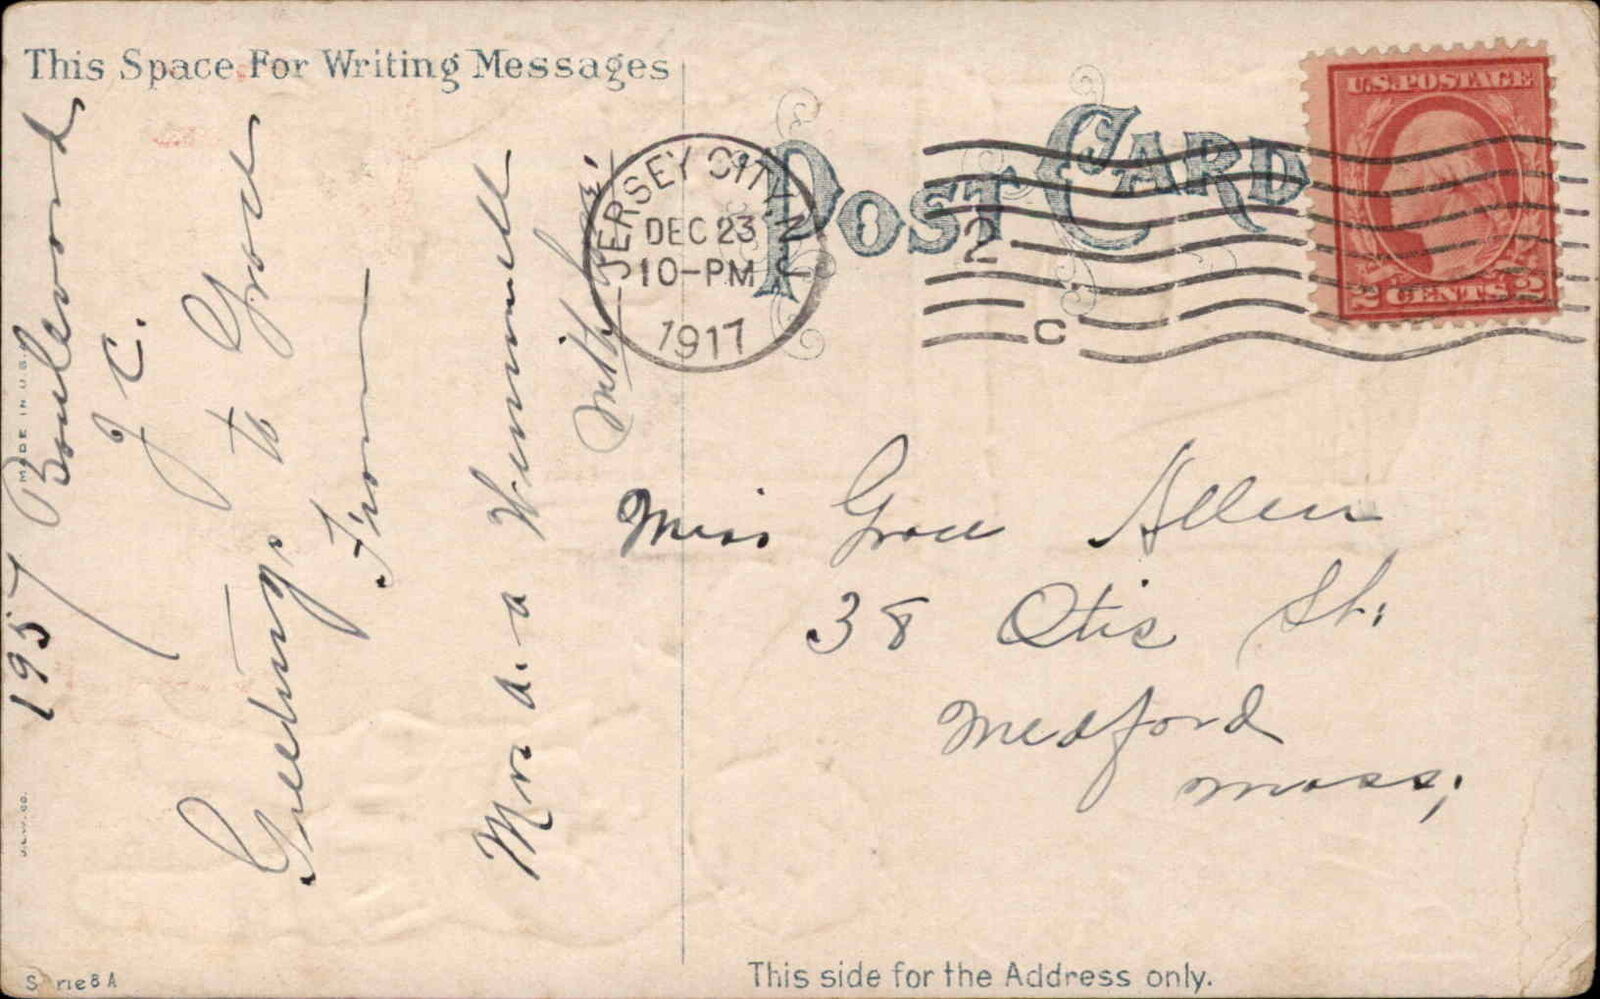 This Space For Writing Messages
POST CARD
U.S. POSTAGE
2 CENTS 2
JERSEY CITY, N.J.
DEC 23
10-PM
1917
2
C
1957 Boulevord
J C.
Greetings to Grace
From
Mrs a. a Wemmell
Miss Grace Allen
38 Otis St.
Medford
Mass.
MADE IN U.S.A.
J.L.W.CO.
S rie 8 A
This side for the Address only.